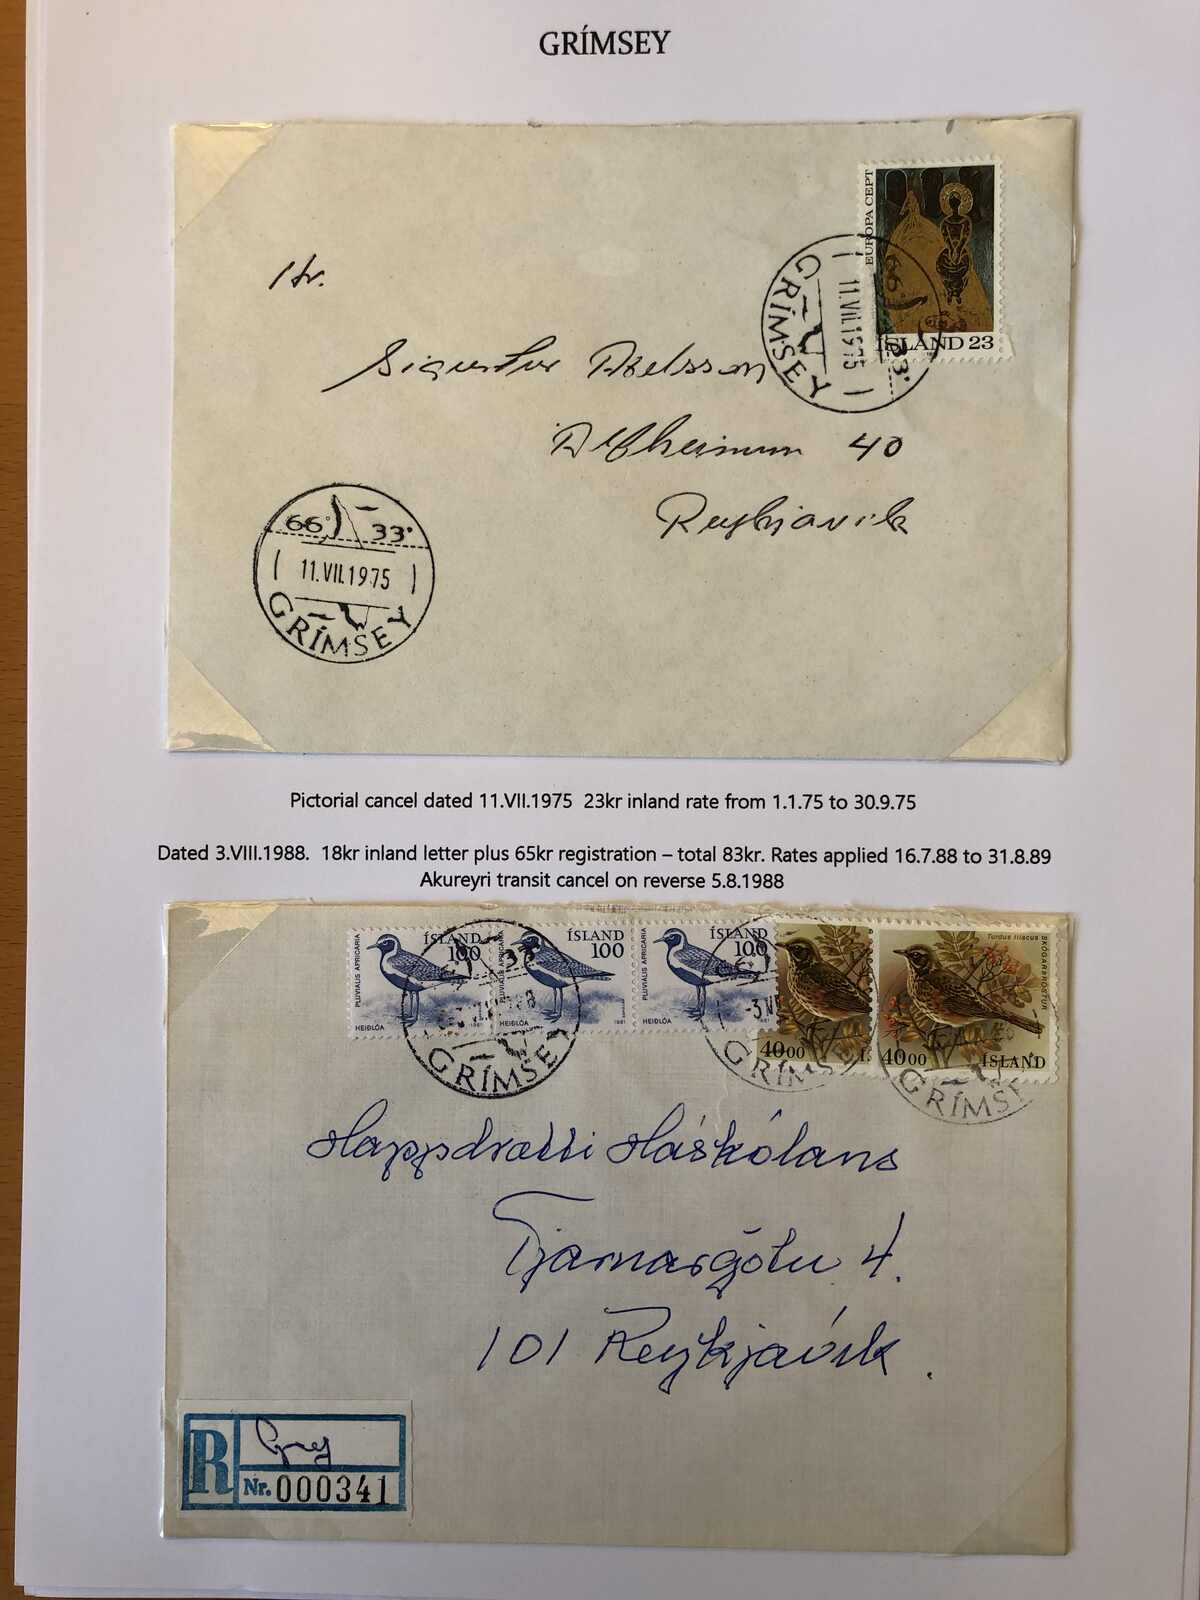 GRÍMSEY
EUROPA CEPT
ÍSLAND 23
66° 33°
11.VII.1975
GRÍMSEY
Hr.
Sigurður Axelsson
Alfheimum 40
Reykjavik
66° 33°
11.VII.1975
GRÍMSEY
Pictorial cancel dated 11.VII.1975 23kr inland rate from 1.1.75 to 30.9.75
Dated 3.VIII.1988. 18kr inland letter plus 65kr registration – total 83kr. Rates applied 16.7.88 to 31.8.89
Akureyri transit cancel on reverse 5.8.1988
PLUVIALIS APRICARIA
ÍSLAND
100
HEIÐLÓA
1981
PLUVIALIS APRICARIA
ÍSLAND
100
HEIÐLÓA
1981
PLUVIALIS APRICARIA
ÍSLAND
100
HEIÐLÓA
1981
4000
Turdus iliacus
SKÓGARÞRÖSTUR
4000
ÍSLAND
GRÍMSEY
-3.VII
GRÍMS
GRÍMSE
Happdrætti Háskólans
Tjarnargötu 4.
101 Reykjavík.
R
Grey
Nr. 000341